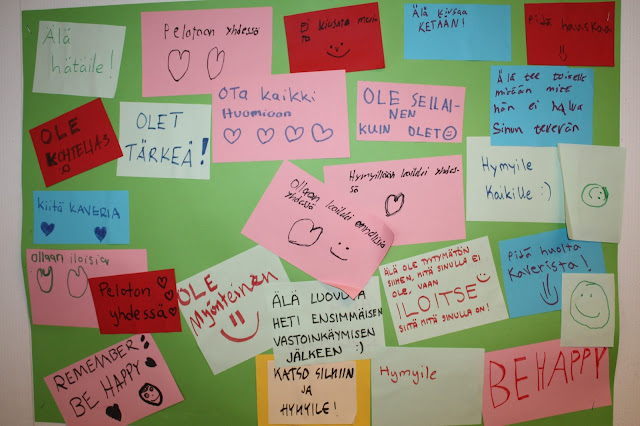 Älä
hätäile!
Pelataan yhdessä
Ei kiusata muita
Älä kiusaa
KETÄÄN!
Pidä hauskaa
OTA KAIKKI
HUOMIOON
OLE SELLAI-
NEN
KUIN OLET
Älä tee toiselle
mitään mitä
hän ei halua
Sinun tekevän
OLE
KOHTELIAS
OLET
TÄRKEÄ!
Hymyillään kaikki yhdes-
sä
Hymyile
Kaikille :)
Kiitä KAVERIA
Ollaan kaikki onnellisia
yhdessä
Ollaan iloisia
Pelataan
yhdessä
OLE
Myönteinen
ÄLÄ OLE TYYTYMÄTÖN
SIIHEN, MITÄ SINULLA EI
OLE, VAAN
ILOITSE
SIITÄ MITÄ SINULLA ON!
Pidä huolta
Kaverista!
ÄLÄ LUOVUTA
HETI ENSIMMÄISEN
VASTOINKÄYMISEN
JÄLKEEN :)
REMEMBER:
BE HAPPY
KATSO SILMIIN
JA
HYMYILE!
Hymyile
BE HAPPY